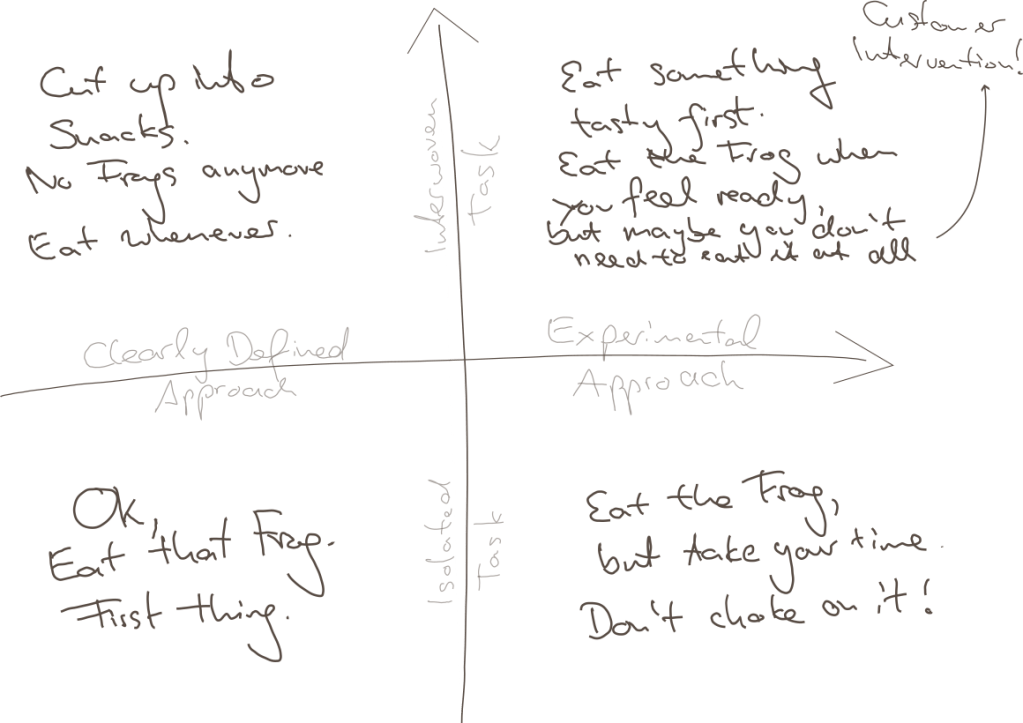 Customer
Intervention!
Cut up into
Snacks.
No Frogs anymore
Eat whenever.
Eat something
tasty first.
Eat the Frog when
you feel ready,
but maybe you don't
need to eat it at all
Interwoven
Task
Clearly Defined
Approach
Experimental
Approach
Isolated
Task
Ok,
Eat that Frog.
First thing.
Eat the Frog,
but take your time.
Don't choke on it!